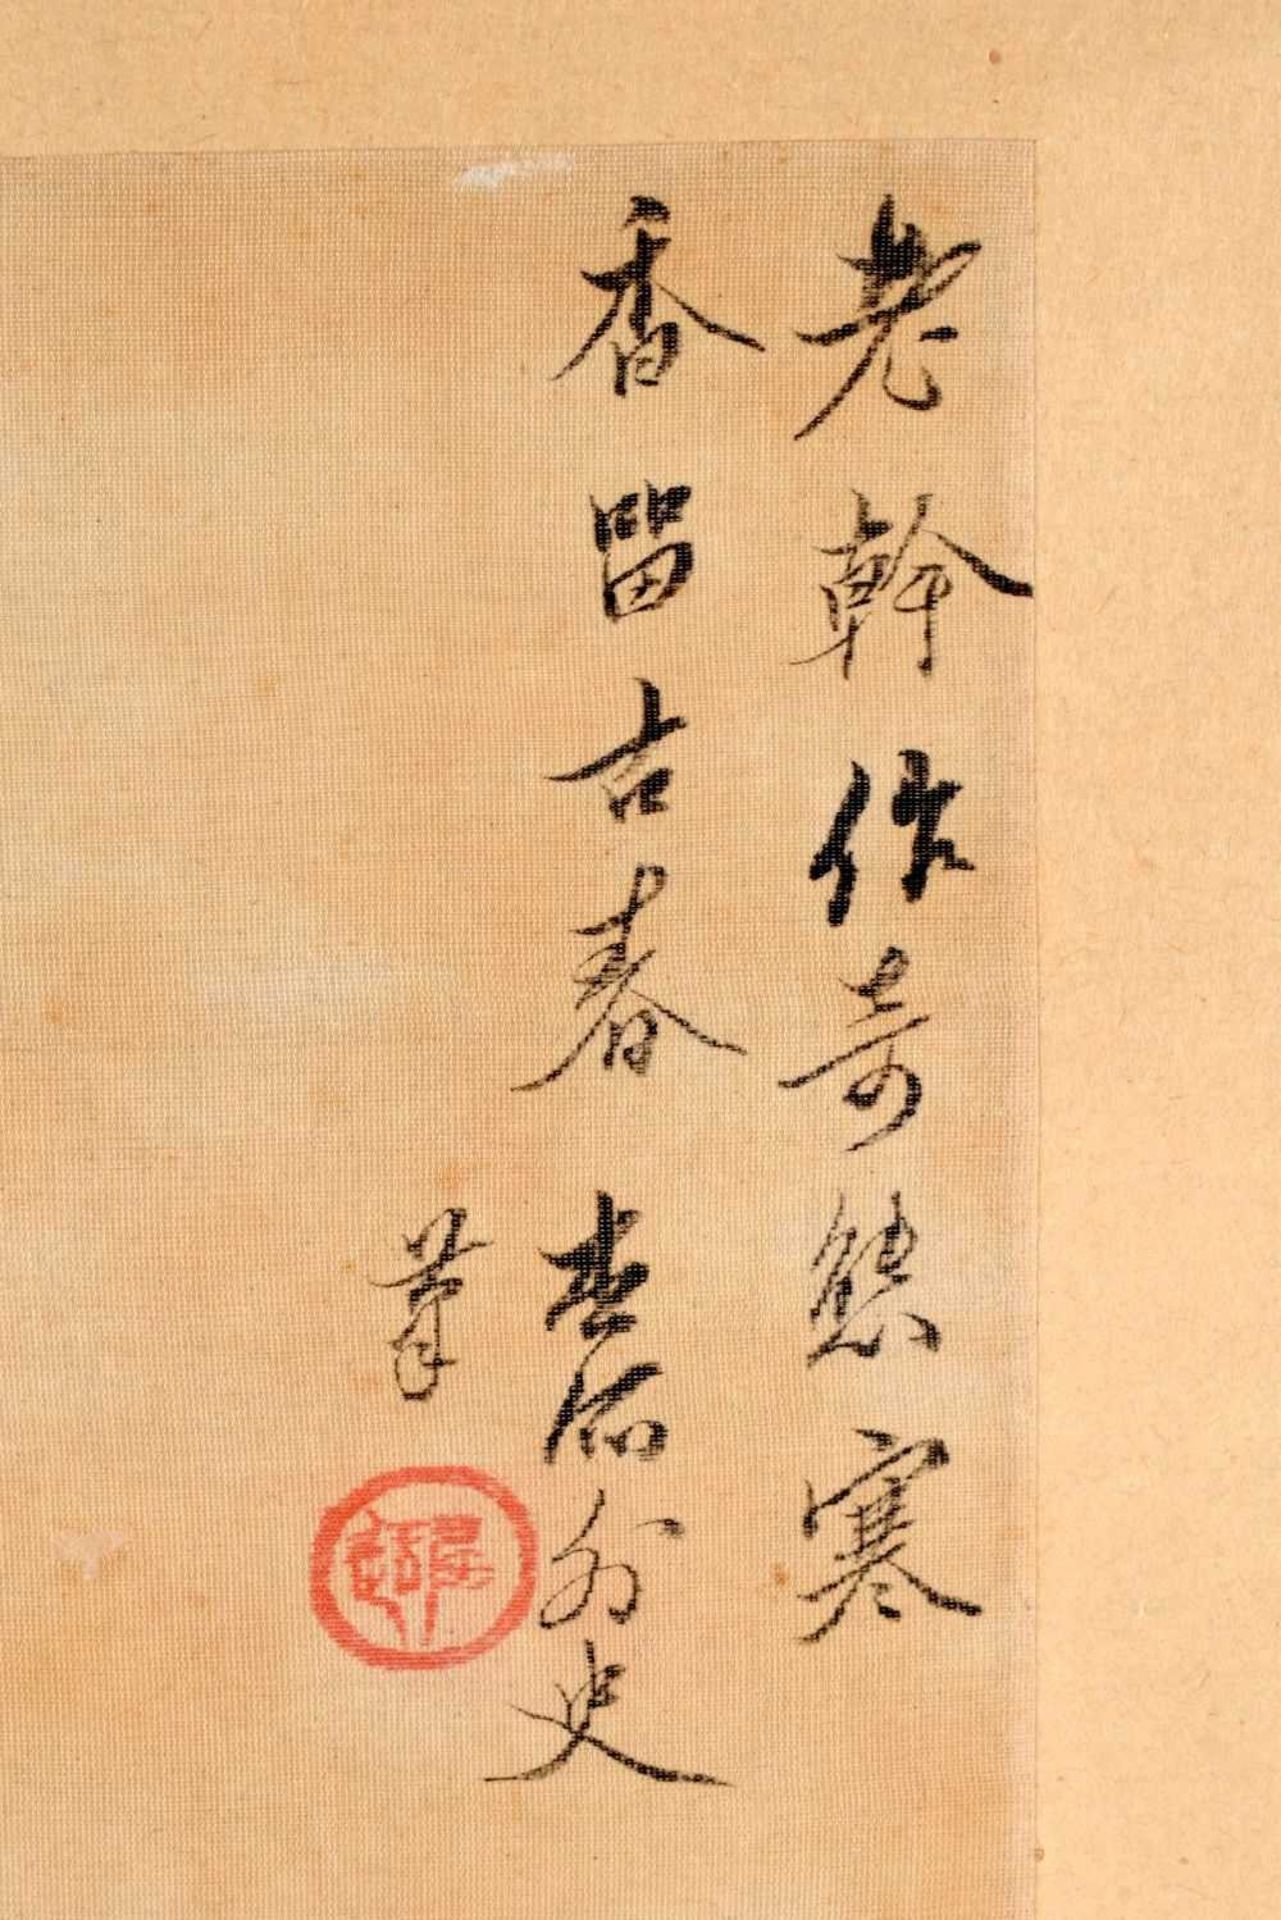 老幹作奇態寒
香留古春 外史
筆